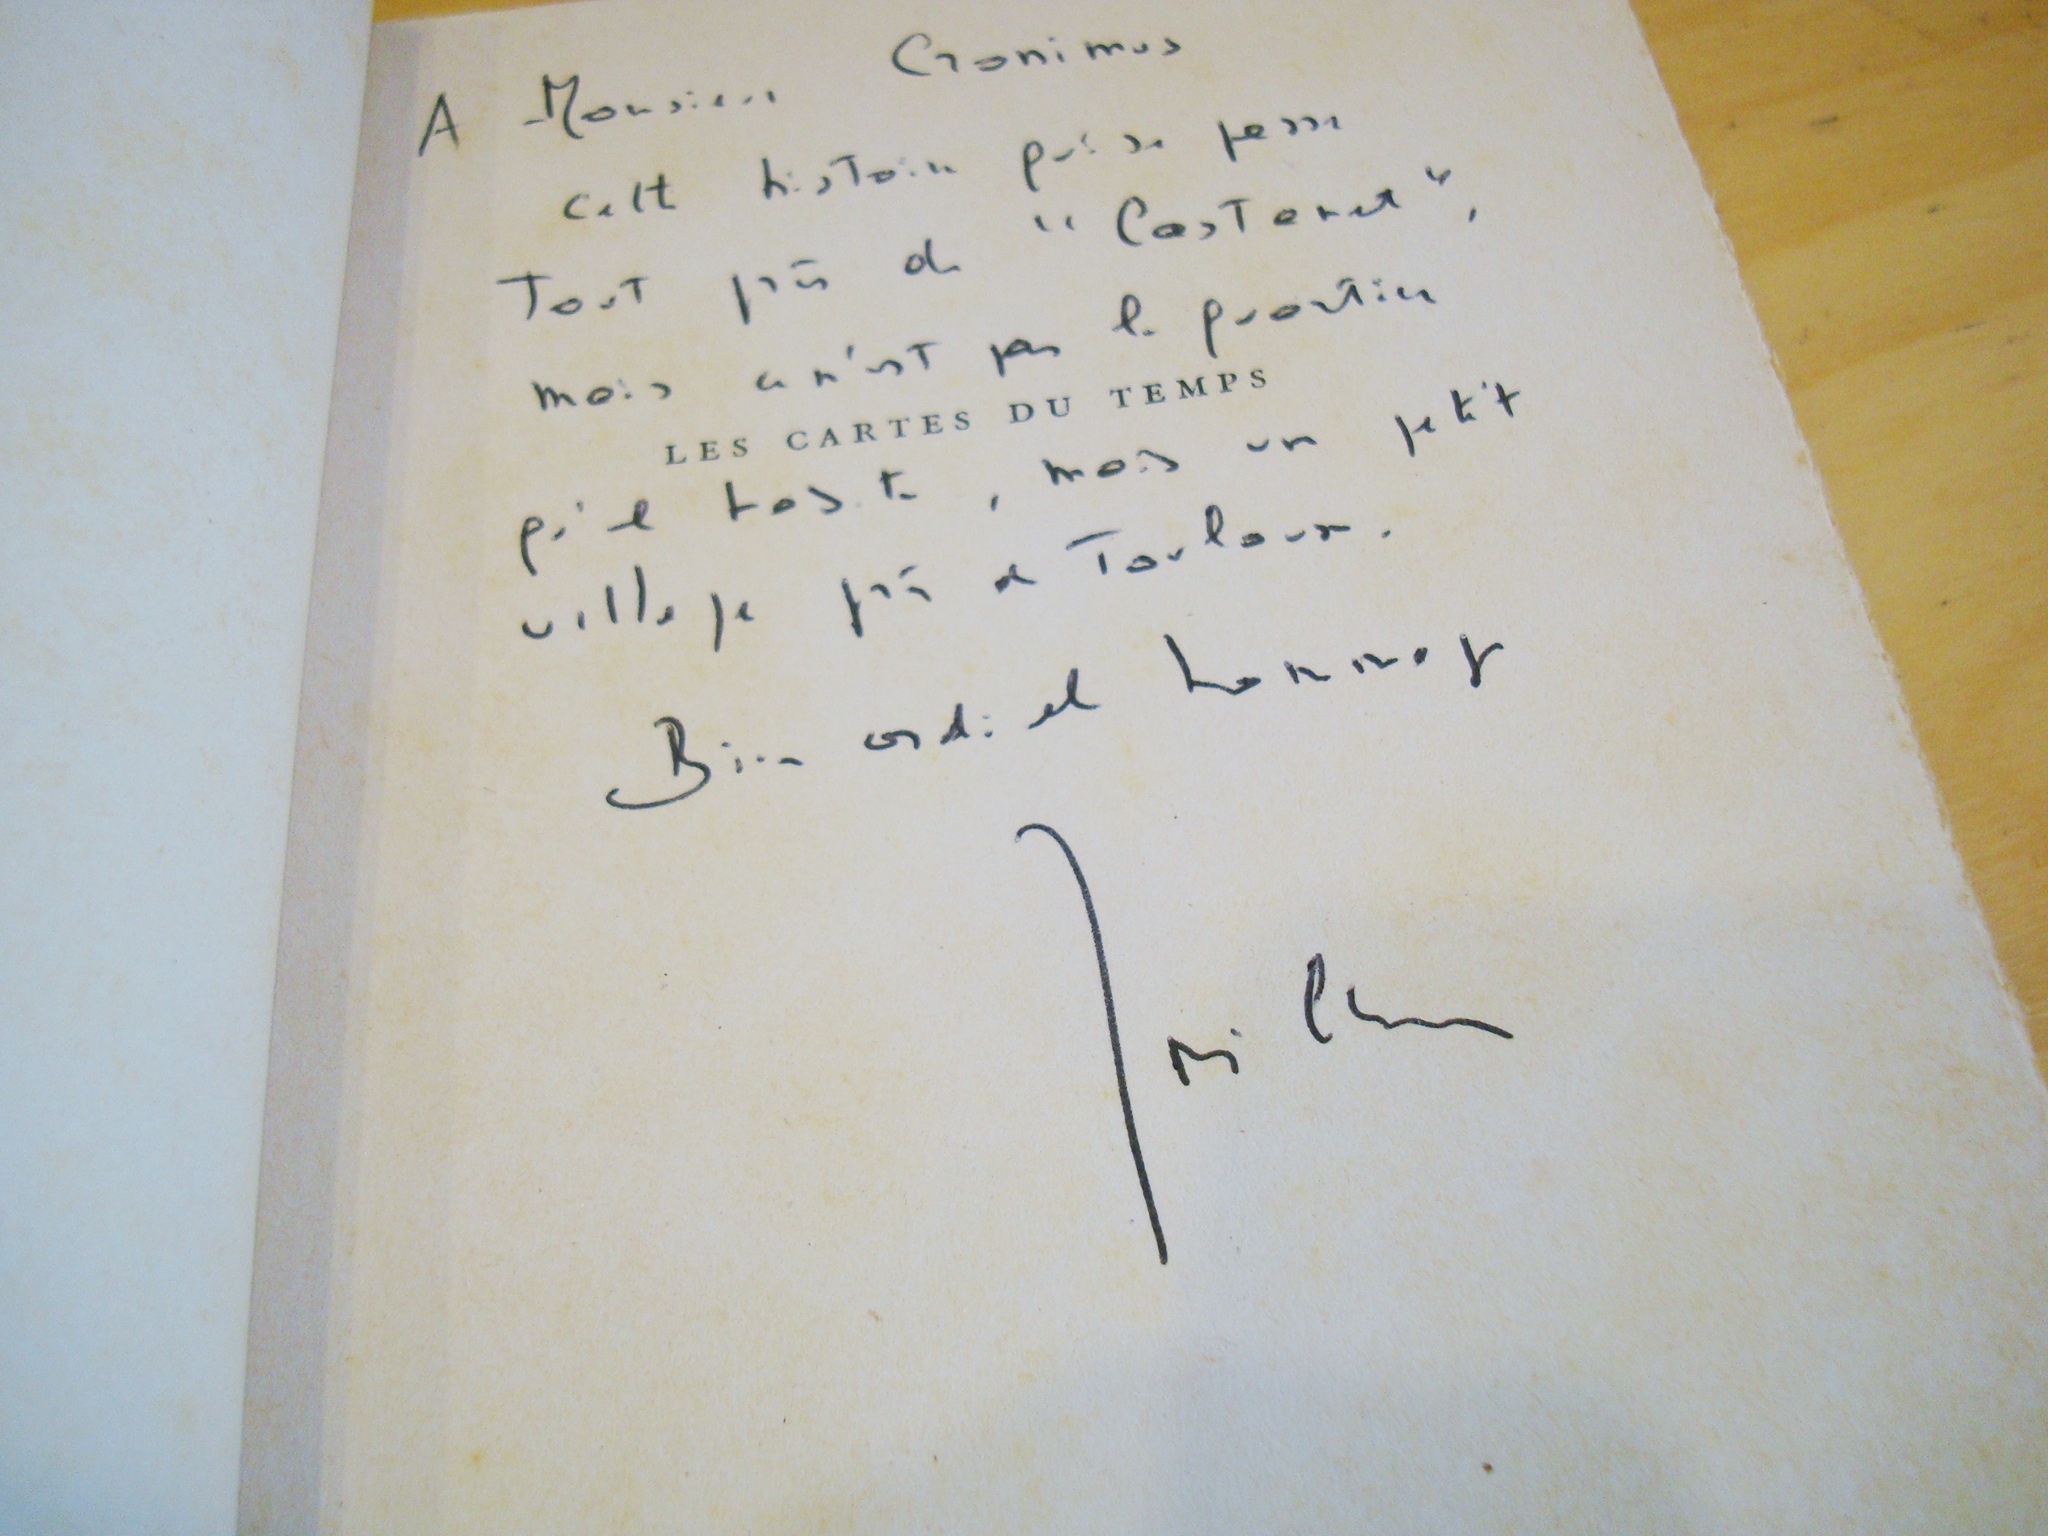 A Monsieur Cronimus
cette histoire qui se passe
Tout près de "Castanet",
mais ce n'est pas le quartier
LES CARTES DU TEMPS
qu'il habite, mais un petit
village près de Toulouse.
Bien cordiel hommage